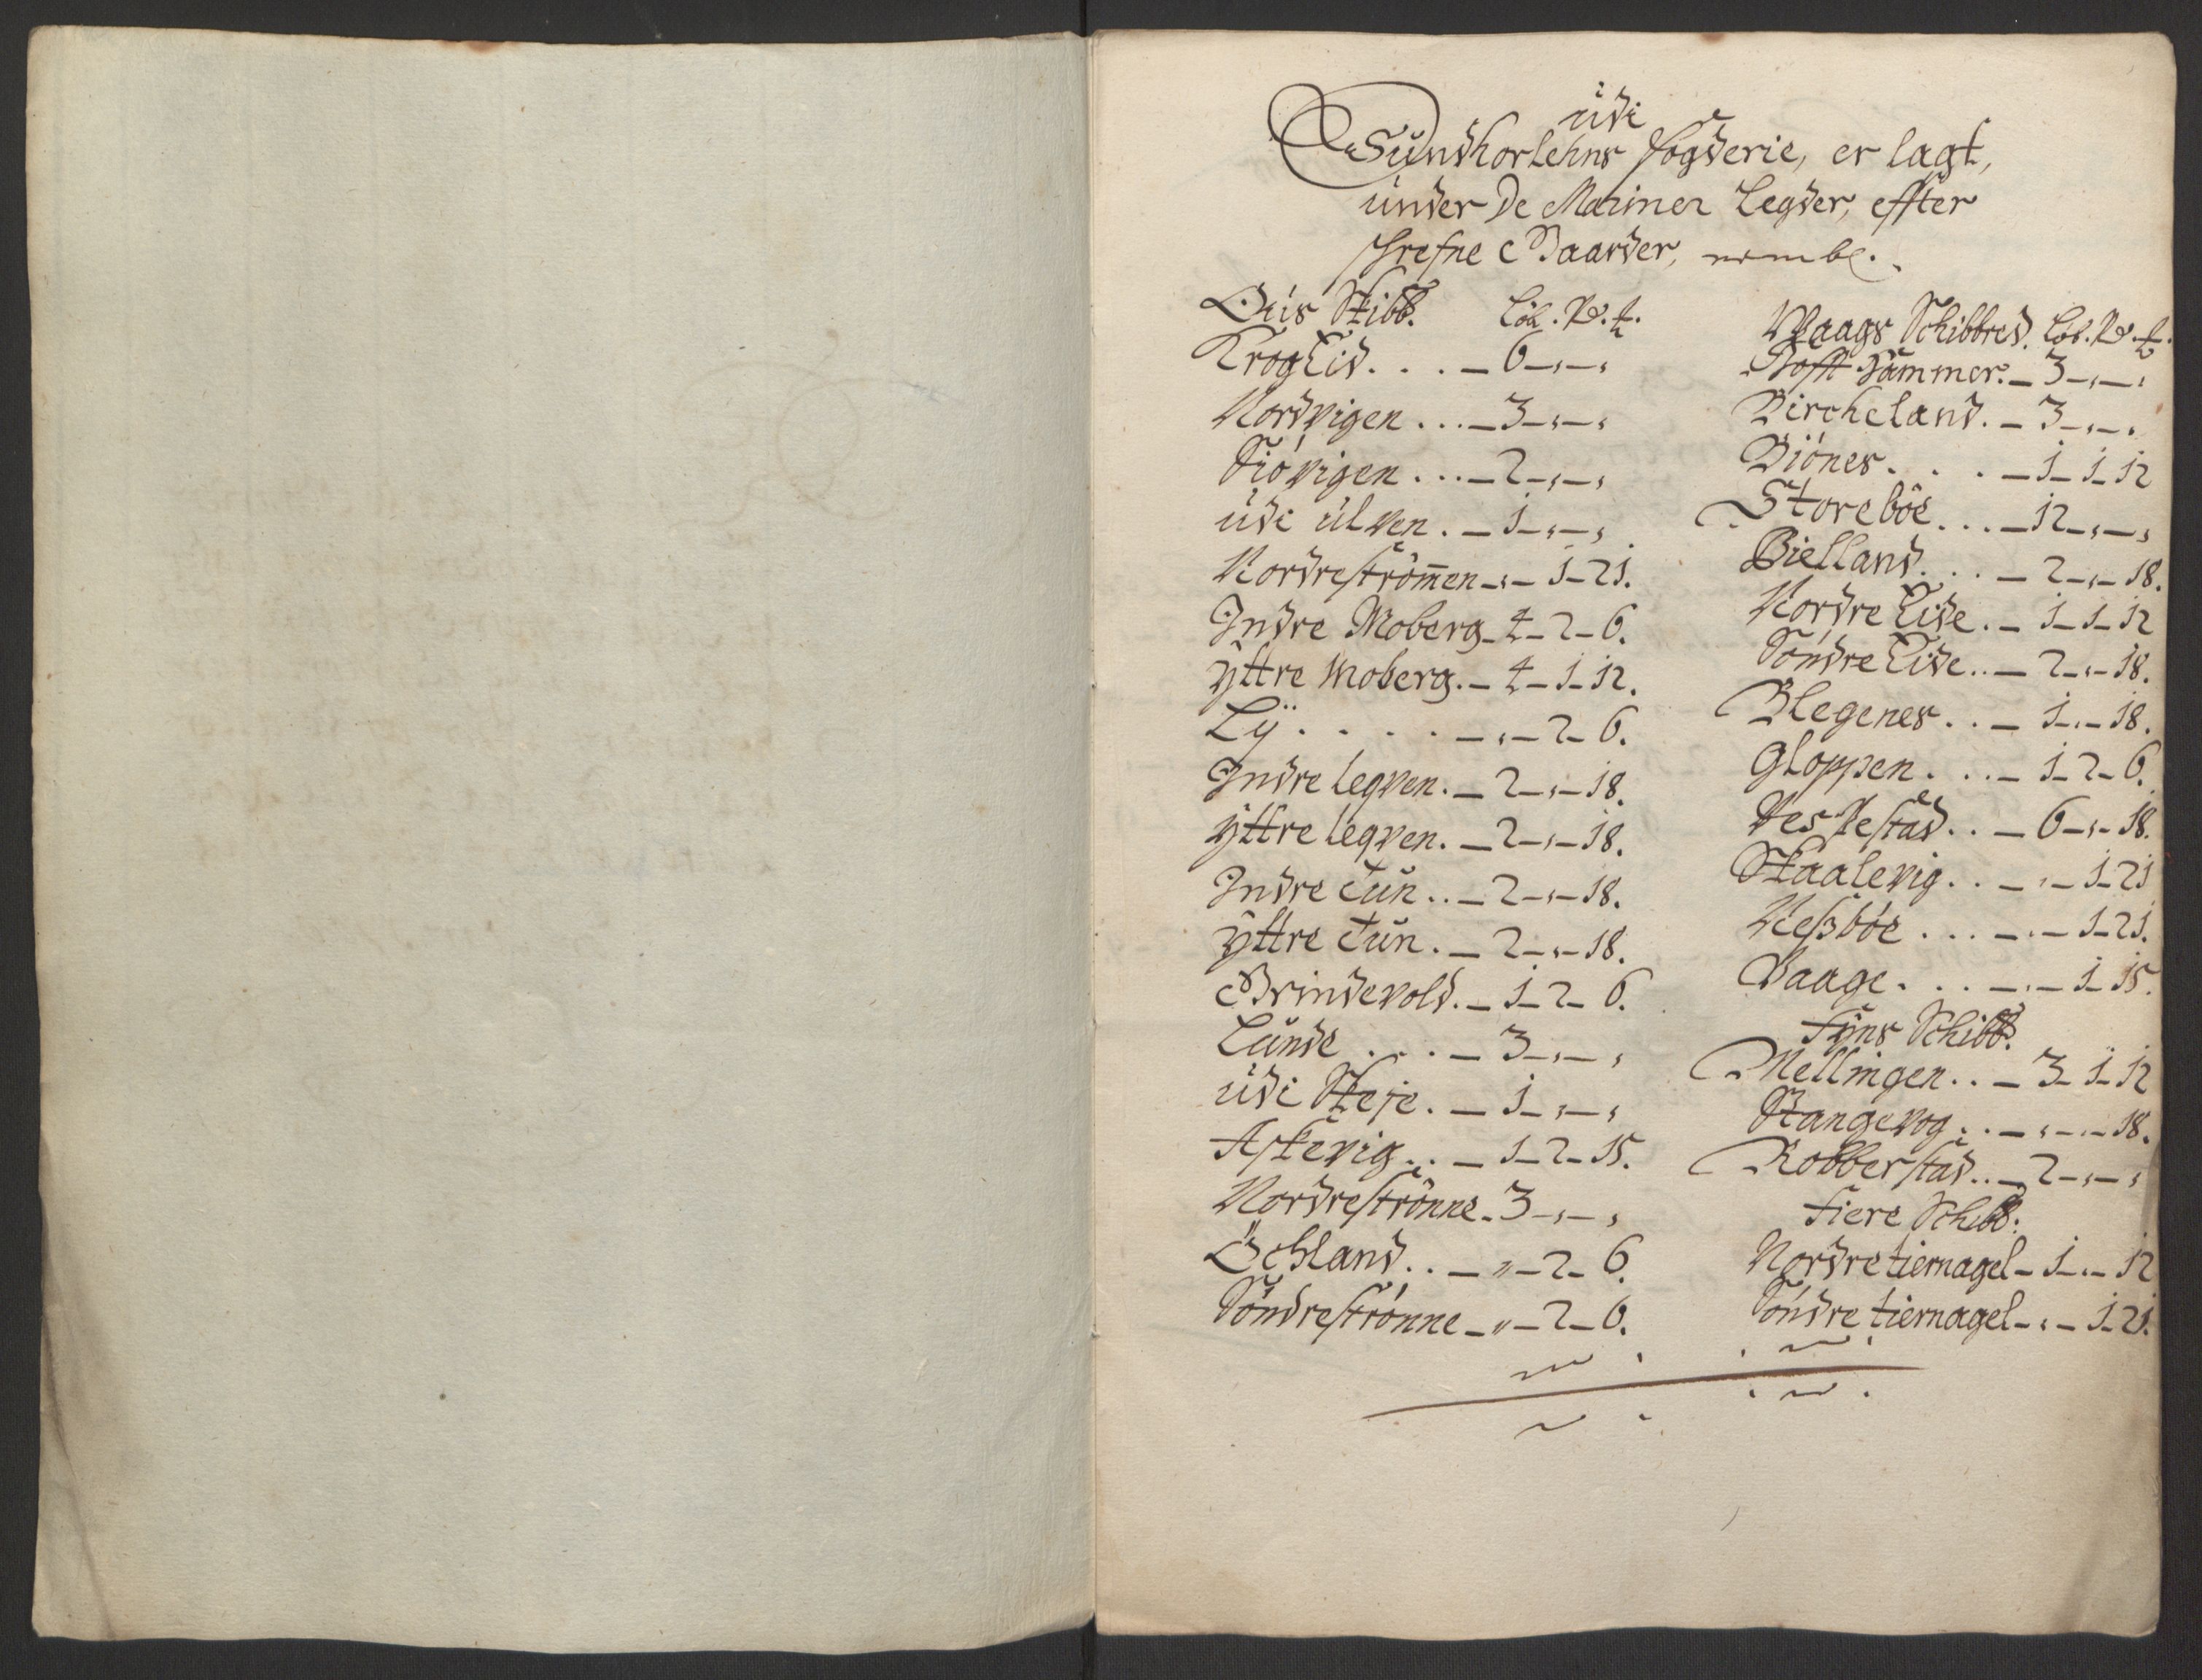 udi
Sundhorlehns fogderie, er lagt,
under De Mariner Legder, effter
schrefne Gaarder, nembl.
Ous Skibb. Løb. Pd. t.
Krog Eid. . . . – 6 – „ – „
Nordvigen . . . – 3 – „ – „
Siøvigen . . . – 2 – „ – „
udi ulven . – 1 – „ – „
Nordre strømmen – „ – 1 – 21.
Indre Moberg – 4 – 2 – 6.
ÿttre Moberg. – 4 – 1 – 12.
Lÿ . . . . – „ – 2 – 6.
Indre legven. – 2 – „ – 18.
ÿttre legven. – 2 – „ – 18.
Indre Tun . . – 2 – „ – 18.
ÿttre Tun . – 2 – „ – 18.
Grindevold. – 1 – 2 – 6.
Lunde . . . – 3 – „ – „
udi Skeje . – 1 – „ – „
Askevig . . – 1 – 2 – 15.
Nordre strønne – 3 – „ – „
Öchland . . – „ – 2 – 6.
Söndre strønne – „ – 2 – 6.
Waags Schibbred. Løb. Pd. t.
Tofft hammer. – 3 – „ – „
Bircheland. – 3 – „ – „
Biönes . . . – 1 – 1 – 12
Storebøe . . . – 12 – „ – „
Bielland . . . – 2 – „ – 18.
Nordre Eide . – 1 – 1 – 12
Söndre Eide . . – 2 – „ – 18.
Blegenes . . – 1 – „ – 18.
Gloppen . . . – 1 – 2 – 6.
Vespestad . . – 6 – „ – 18.
Skaalevig . . – „ – 1 – 21
Neßbøe . . . – „ – 1 – 21.
Vaage . . . – „ – 1 – 15.
Fÿns Schibb.
Mellingen . . – 3 – 1 – 12
Stangevog . . – „ – „ – 18.
Robberstad . . – 2 – „ – „
Fiere Schibb.
Nordre tiernagel – 1 – „ – 12
Söndre tiernagel – „ – 1 – 21.